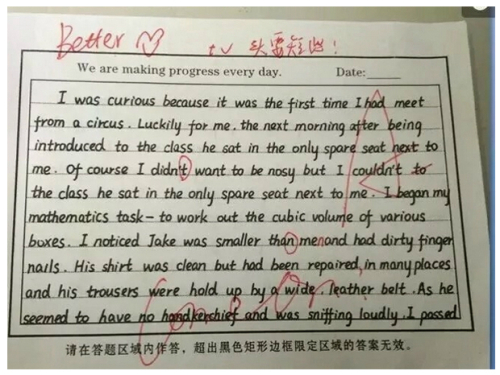 Better
tv 头要短些!
We are making progress every day. Date:
I was curious because it was the first time I had meet
from a circus. Luckily for me, the next morning after being
introduced to the class he sat in the only spare seat next to
me. Of course I didn't want to be nosy but I couldn't to
the class he sat in the only spare seat next to me. I began my
mathematics task - to work out the cubic volume of various
boxes. I noticed Jake was smaller than men and had dirty finger
nails. His shirt was clean but had been repaired in many places
and his trousers were hold up by a wide, leather belt. As he
seemed to have no handkerchief and was sniffing loudly. I passed
请在答题区域内作答,超出黑色矩形边框限定区域的答案无效。